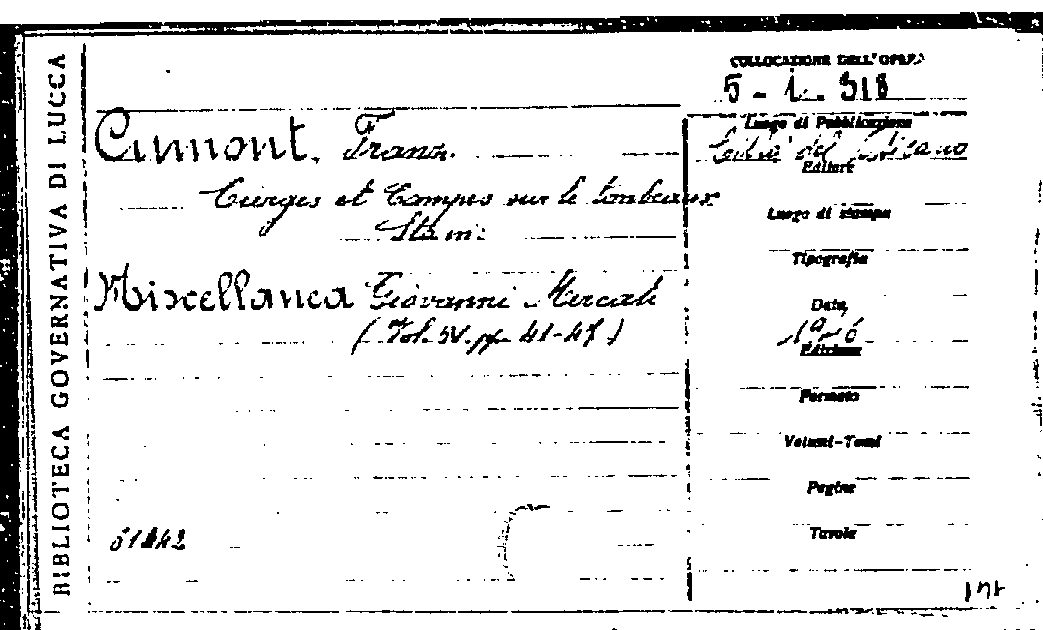 BIBLIOTECA GOVERNATIVA DI LUCCA
COLLOCAZIONE DELL'OPERA
5 - 1 - 318
Cumont, Franz.
Cierges et Lampes sur le tombeaux
Miscellanea Giovanni Mercati
(Vol. IV. pp. 41-47)
61242
Luogo di Pubblicazione
Città del Vaticano
Editore
Luogo di stampa
Tipografia
Data
Edizione
Formato
Volumi-Tomi
Pagine
Tavole